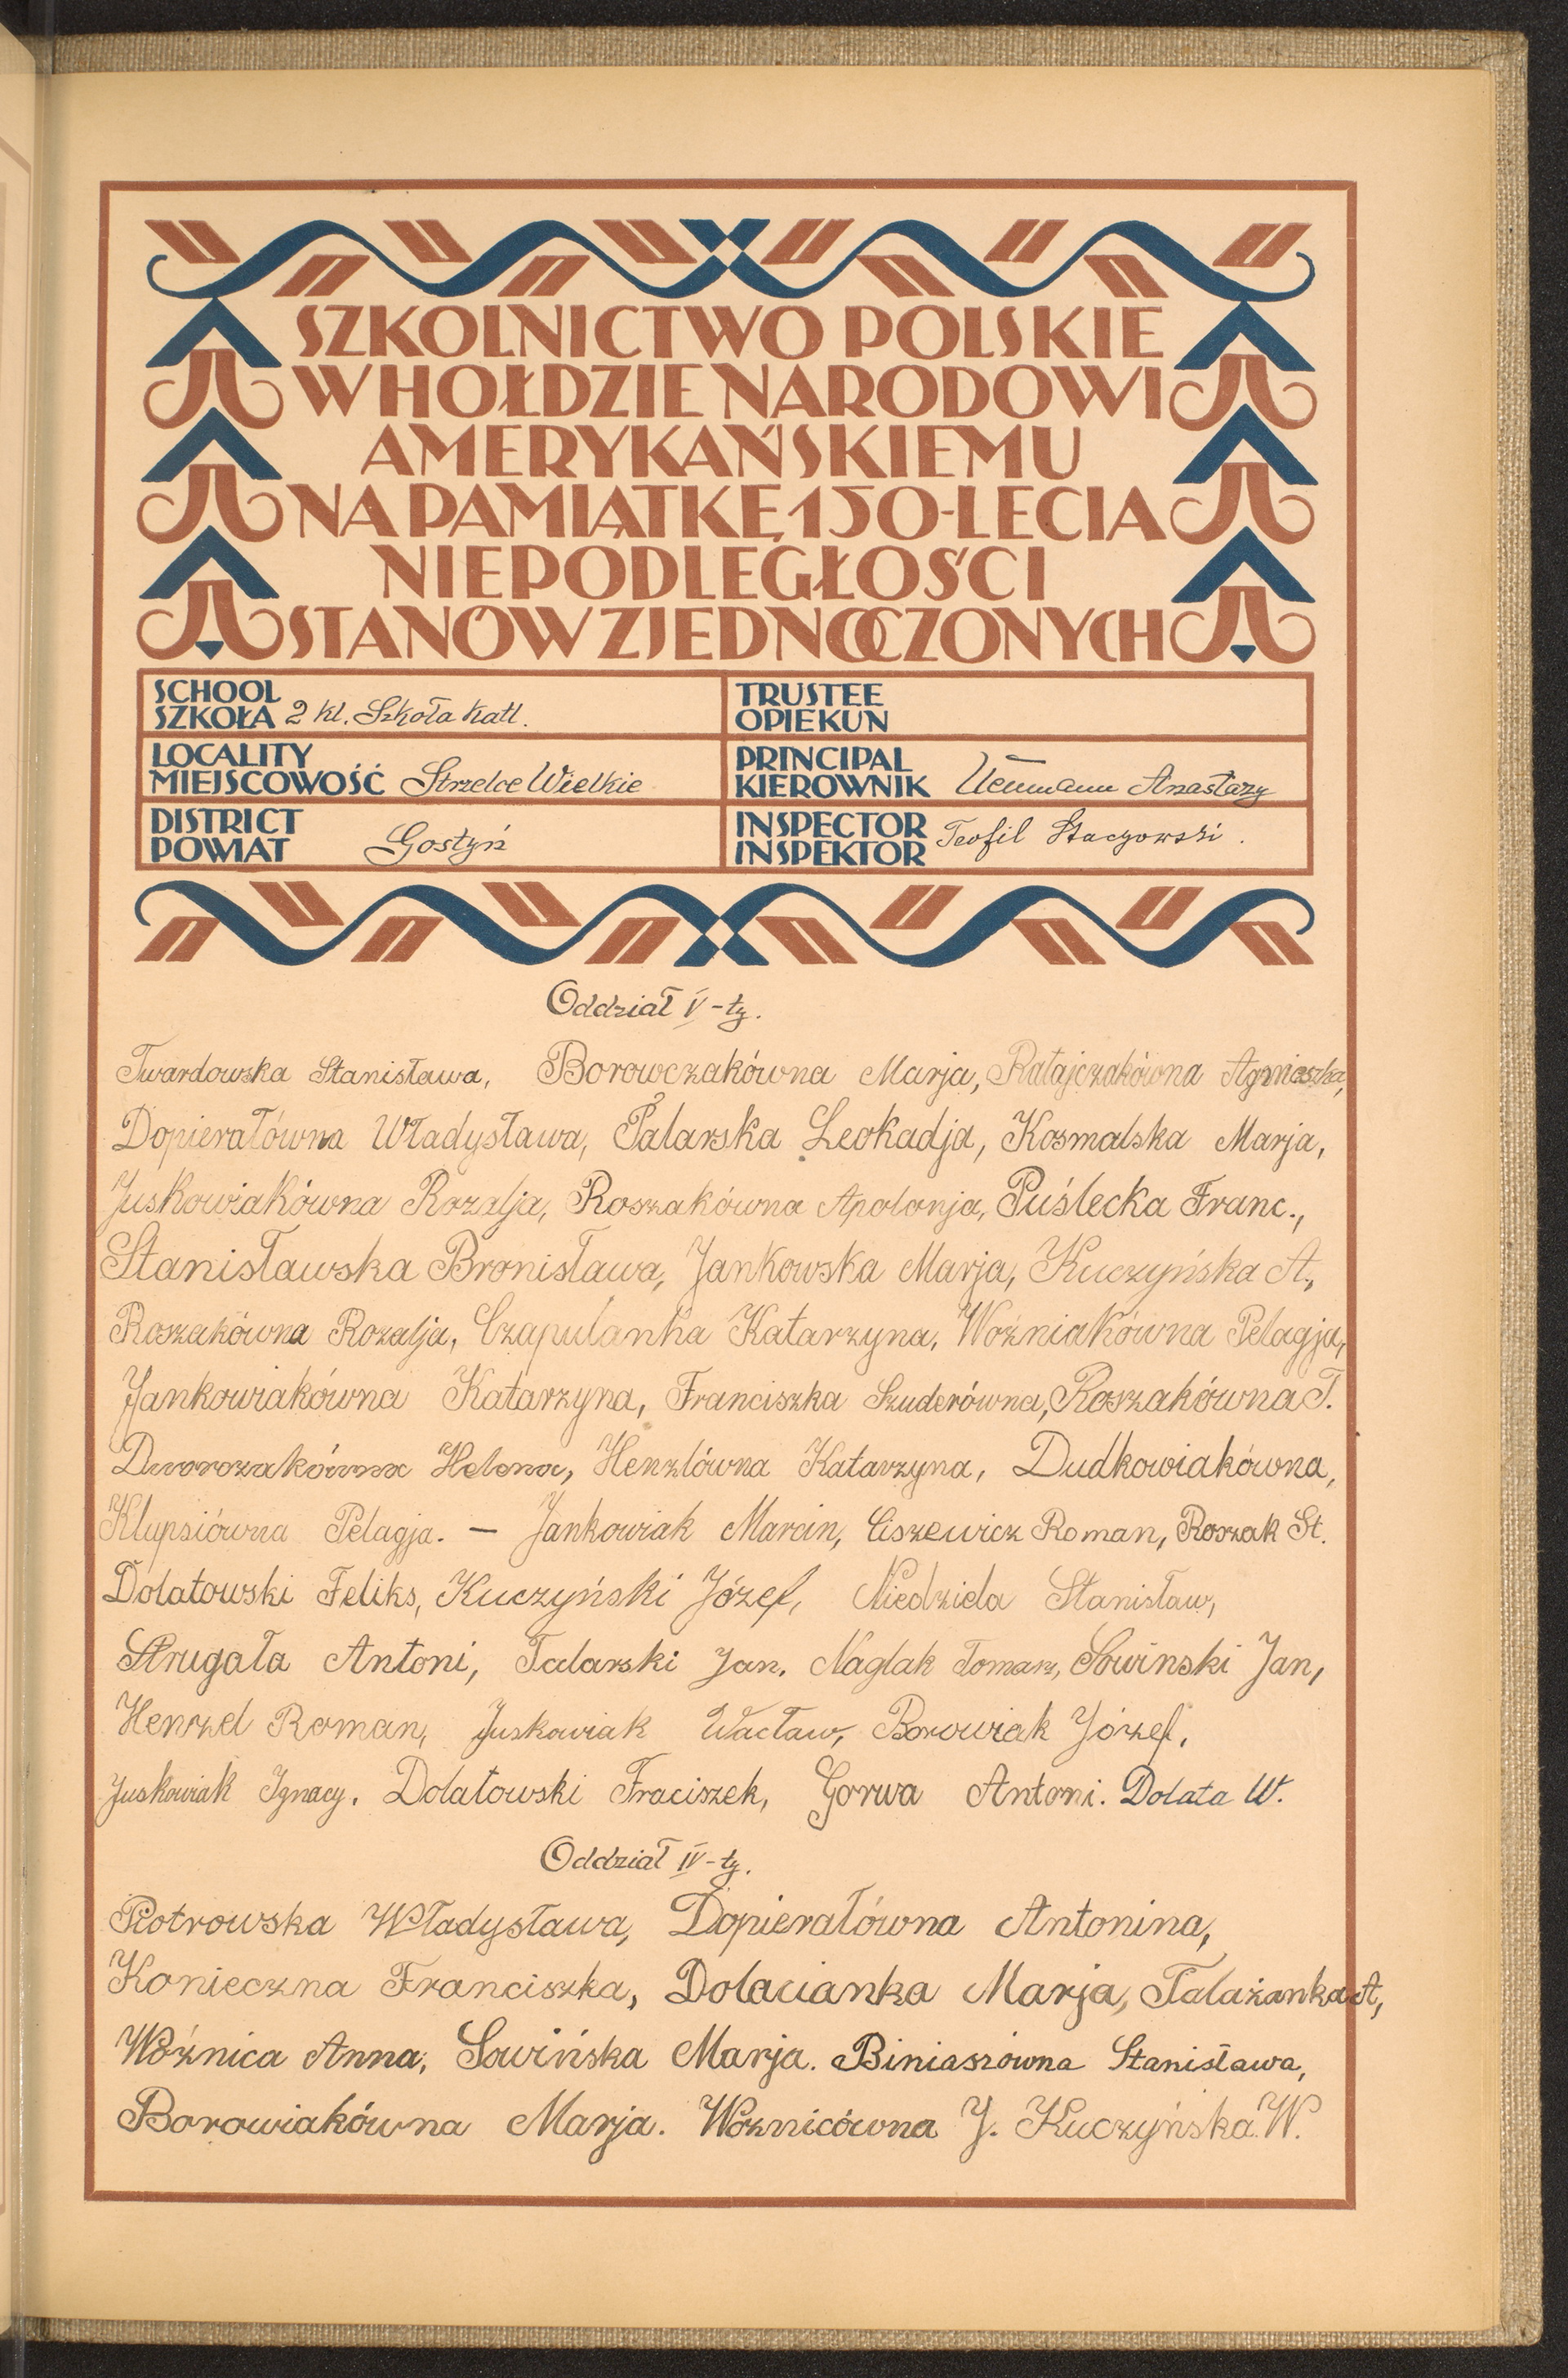 SZKOLNICTWO POLSKIE
W HOŁDZIE NARODOWI
AMERYKAŃSKIEMU
NA PAMIĄTKĘ 150-LECIA
NIEPODLEGŁOŚCI
STANÓW ZJEDNOCZONYCH
SCHOOL
SZKOŁA 2 kl. Szkoła Katl.
TRUSTEE
OPIEKUN
LOCALITY
MIEJSCOWOŚĆ Strzelce Wielkie
PRINCIPAL
KIEROWNIK Anastazy
DISTRICT
POWIAT Gostyń
INSPECTOR
INSPEKTOR Teofil Stachowski.
Oddział V-ty.
Twardowska Stanisława, Borowczakówna Marja, Ratajczakówna Agnieszka,
Dopierałówna Władysława, Talarska Leokadja, Kosmalska Marja,
Juskowiakówna Rozalja, Roszakówna Apolonja, Puślecka Franc.,
Stanisławska Bronisława, Jankowska Marja, Kuczyńska A.,
Roszakówna Rozalja, Czapulanka Katarzyna, Woźniakówna Pelagja,
Jankowiakówna Katarzyna, Franciszka Szuderówna, Roszakówna T.
Dworczakówna Helena, Henzlówna Katarzyna, Dudkowiakówna,
Klupsiówna Pelagja. – Jankowiak Marcin, Ciszewicz Roman, Roszak St.
Dolatowski Feliks, Kuczyński Józef, Niedziela Stanisław,
Strugała Antoni, Talarski Jan. Naglak Tomasz, Sowinski Jan,
Henzel Roman, Juskowiak Wacław, Borowiak Józef,
Juskowiak Ignacy. Dolatowski Fraciszek, Gorwa Antoni. Dolata W.
Oddział IV-ty.
Piotrowska Władysława, Dopierałówna Antonina,
Konieczna Franciszka, Dolacianka Marja, Talażanka A,
Woźnica Anna, Sowińska Marja. Biniaszówna Stanisława,
Borowiakówna Marja. Woźnicówna J. Kuczyńska W.